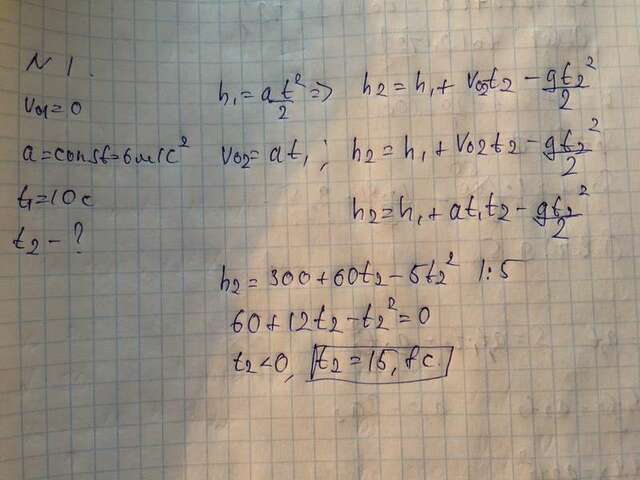 N 1.
V₀₁=0
a=const=6м/с²
t₁=10с
t₂-?
h₁=at²/2 => h₂=h₁+V₀₂t₂-gt₂²/2
V₀₂=at₁; h₂=h₁+V₀₂t₂-gt₂²/2
h₂=h₁+at₁t₂-gt₂²/2
h₂=300+60t₂-5t₂² |:5
60+12t₂-t₂²=0
t₂<0, t₂=15,8с.